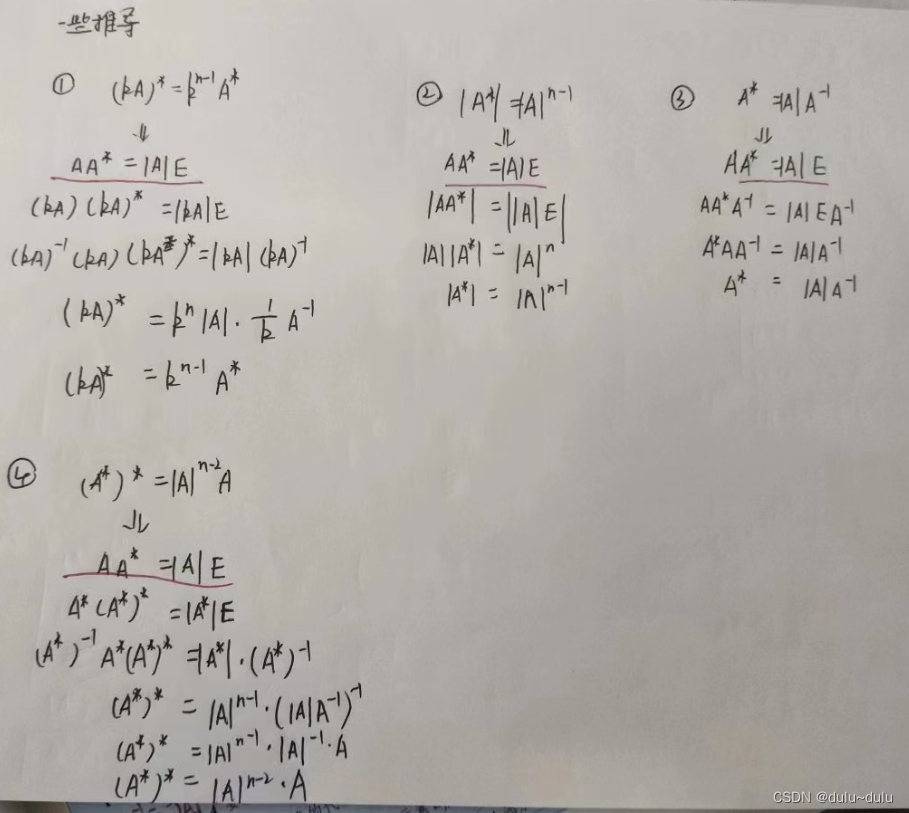 一些推导
① (kA)* = kⁿ⁻¹A*
⇓
AA* = |A|E
(kA)(kA)* = |kA|E
(kA)⁻¹(kA)(kA*)* = |kA|(kA)⁻¹
(kA)* = kⁿ|A|·1/k A⁻¹
(kA)* = kⁿ⁻¹A*
② |A*| = |A|ⁿ⁻¹
⇓
AA* = |A|E
|AA*| = ||A|E|
|A||A*| = |A|ⁿ
|A*| = |A|ⁿ⁻¹
③ A* = |A|A⁻¹
⇓
AA* = |A|E
AA*A⁻¹ = |A|EA⁻¹
A*AA⁻¹ = |A|A⁻¹
A* = |A|A⁻¹
④ (A*)* = |A|ⁿ⁻²A
⇓
AA* = |A|E
A*(A*)* = |A*|E
(A*)⁻¹A*(A*)* = |A*|·(A*)⁻¹
(A*)* = |A|ⁿ⁻¹·(|A|A⁻¹)⁻¹
(A*)* = |A|ⁿ⁻¹·|A|⁻¹·A
(A*)* = |A|ⁿ⁻²·A
CSDN @dulu~dulu